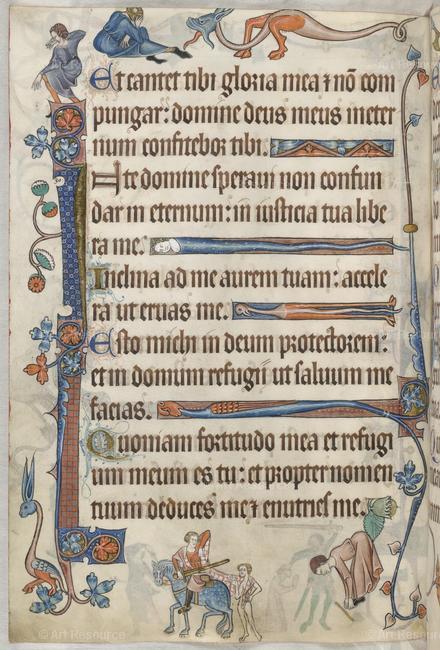 Et cantet tibi gloria mea ⁊ nō com
pungar: domine deus meus ineter
num confitebor tibi.
In te domine speraui non confun
dar in eternum: in iusticia tua libe
ra me.
Inclina ad me aurem tuam: accele
ra ut eruas me.
Esto michi in deum protectorem:
et in domum refugii ut saluum me
facias.
Quoniam fortitudo mea et refugi
um meum es tu: et propter nomen
tuum deduces me ⁊ enutries me.
© Art Resource
© Art Resource